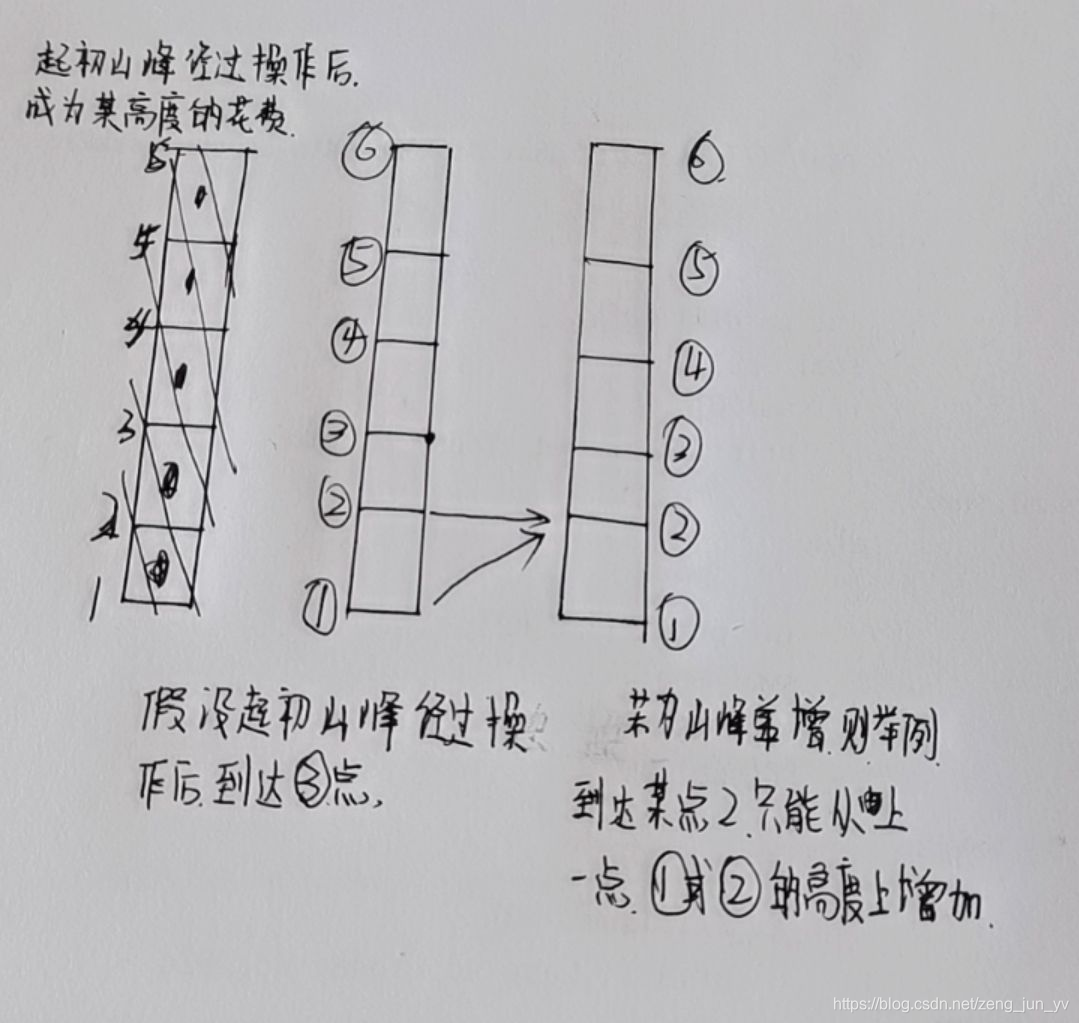 起初山峰经过操作后,
成为某高度的花费.
5
4
3
2
1
⑥
⑤
④
③
②
①
⑥
⑤
④
③
②
①
假没起初山峰经过操
作后.到达③点,
若为山峰单增.则举例
到达某点2.只能从上
一点.①或②的高度上增加.
https://blog.csdn.net/zeng_jun_yv